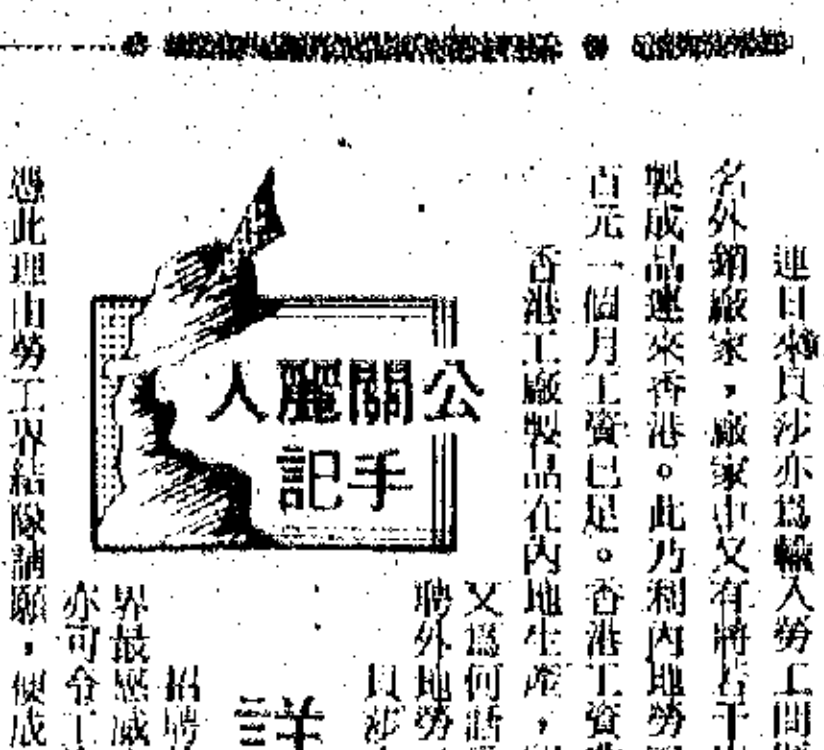 連日來貝沙亦爲輸入勞工問
名外銷廠家，廠家中又有將若干
製成品運來香港。此乃利內地勞
百元一個月工資已足。香港工資
香港工廠製品在內地生產，
又爲何
聘外地勞
貝沙
公關麗人
手記
招聘
界最
亦可令工
憑此理由勞工界結隊請願，便成